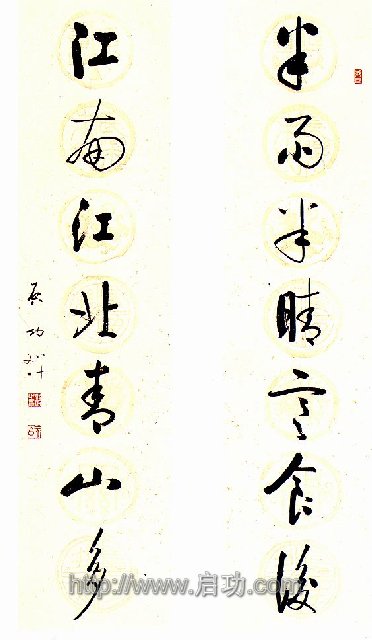 半雨半晴寒食後
江南江北青山多
启功
http://www.启功.com